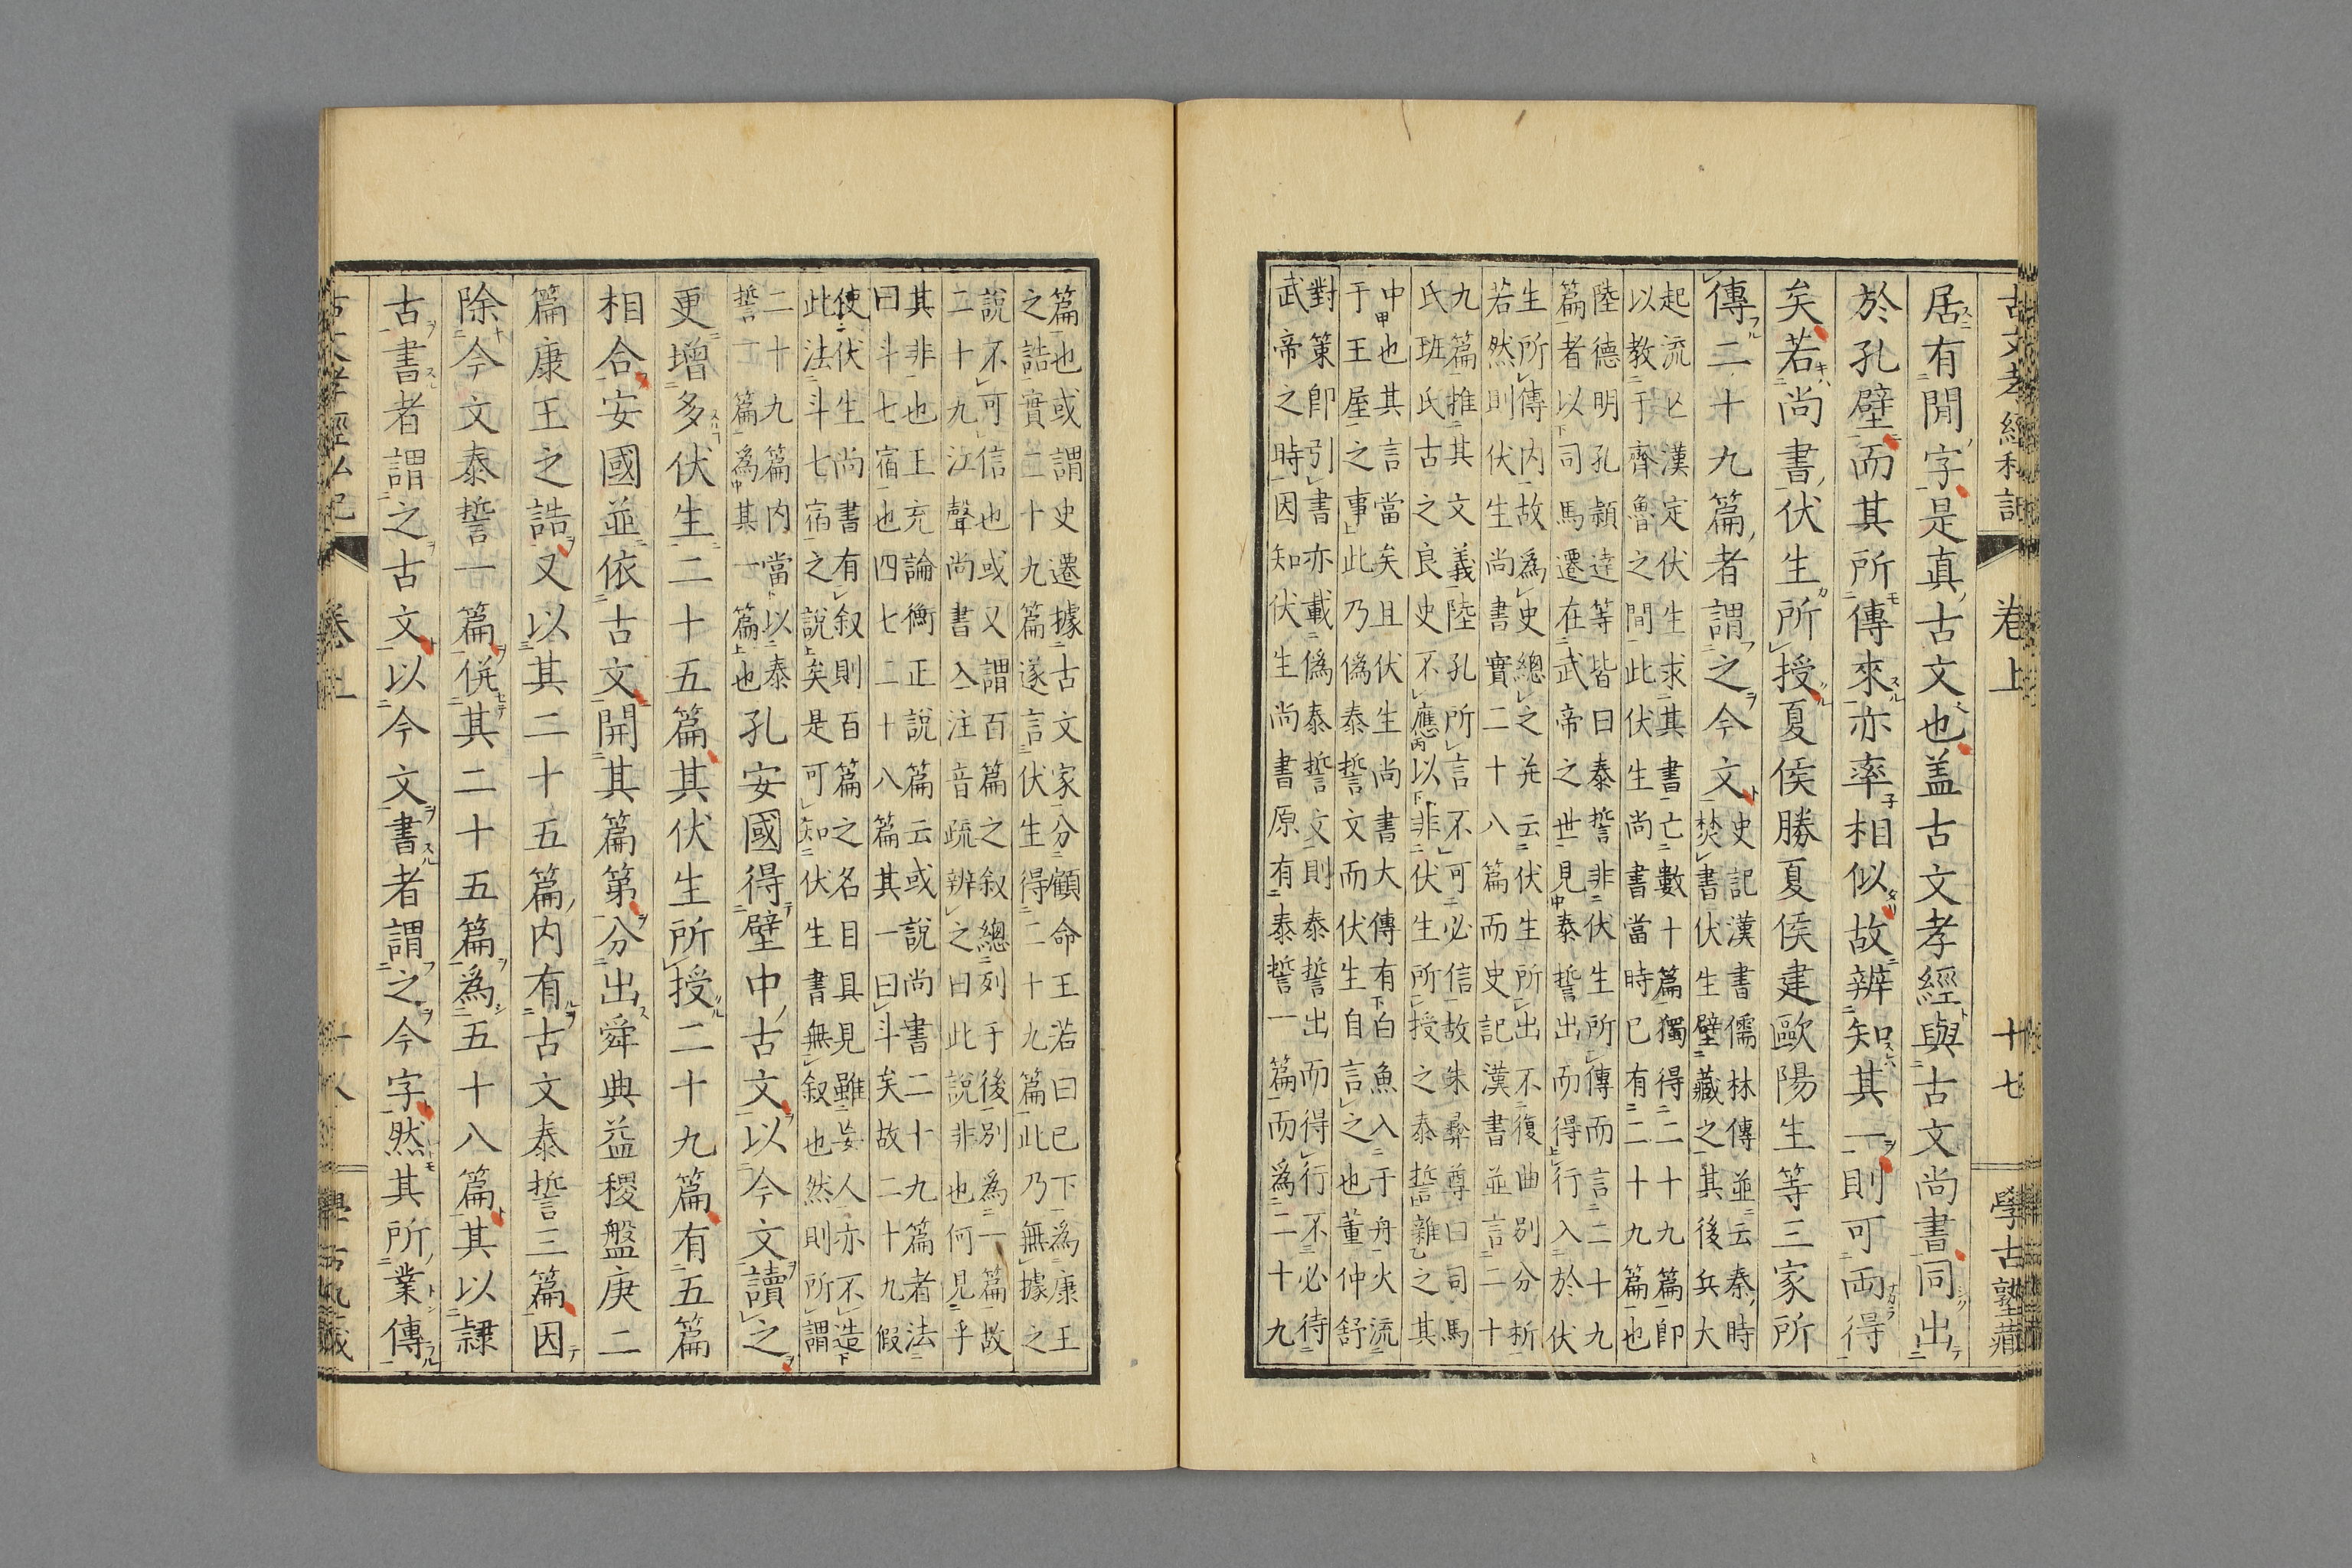 古文孝經私記
卷上
十七
學古塾藏
居有閒字是真古文也盖古文孝經與古文尚書同出
於孔壁而其所傳來亦率相似故辨知其一則可兩得
矣若尚書伏生所授夏侯勝夏侯建歐陽生等三家所
傳二十九篇者謂之今文
史記漢書儒林傳並云秦時
焚書伏生壁藏之其後兵大
起流亡漢定伏生求其書亡數十篇獨得二十九篇即
以教于齊魯之間此伏生尚書當時已有二十九篇也
陸德明孔穎達等皆曰泰誓非伏生所傳而言二十九
篇者以司馬遷在武帝之世見泰誓出而得行入於伏
生所傳内故爲史總之并云伏生所出不復曲別分析
若然則伏生尚書實二十八篇而史記漢書並言二十
九篇推其文義陸孔所言不可必信故朱彝尊曰司馬
氏班氏古之良史不應以非伏生所授之泰誓雜之其
中也其言當矣且伏生尚書大傳有白魚入于舟火流
于王屋之事此乃偽泰誓文而伏生自言之也董仲舒
對策卽引書亦載偽泰誓文則泰誓出而得行不必待
武帝之時因知伏生尚書原有泰誓一篇而爲二十九
篇也或謂史遷據古文家分顧命王若曰已下為康王
之誥實二十九篇遂言伏生得二十九篇此乃無據之
說不可信也或又謂百篇之叙總列于後別為一篇故
二十九江聲尚書入注音疏辨之曰此說非也何見乎
其非也王充論衡正說篇云或說尚書二十九篇者法
曰斗七宿也四七二十八篇其一曰斗矣故二十九假
使伏生尚書有叙則百篇之名目具見雖妄人亦不造
此法斗七宿之說矣是可知伏生書無叙也然則所謂
二十九篇内當以泰
誓一篇為其一篇也
孔安國得壁中古文以今文讀之
更增多伏生二十五篇其伏生所授二十九篇有五篇
相合安國並依古文開其篇第分出舜典益稷盤庚二
篇康王之誥又以其二十五篇内有古文泰誓三篇因
除今文泰誓一篇併其二十五篇為五十八篇其以隷
古書者謂之古文以今文書者謂之今字然其所業傳
卷上